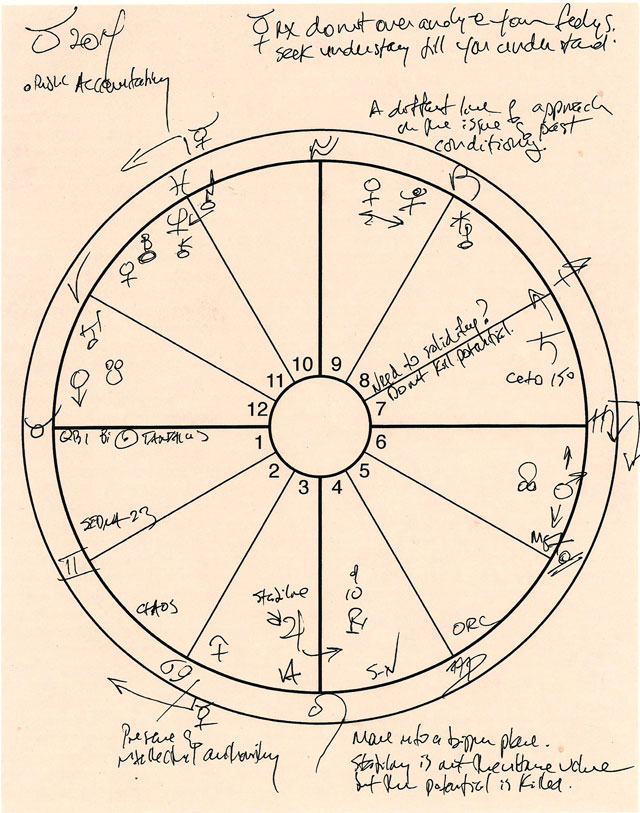 2014
℞ do not over analyze your feelings.
seek understanding till you understand.
Public Accountability
A different line of approach
on the issue of past
conditioning.
10 9
11 8
12 7
1 6
2 5
3 4
Need to solidify?
Don't kill potential.
Ceto 150
QB1 TANTALUS
SEDNA-23
CHAOS
ORC
10
SN
Pressure of
intellectual authority
Move into a bigger place.
Stability is not the
but the potential is killed.